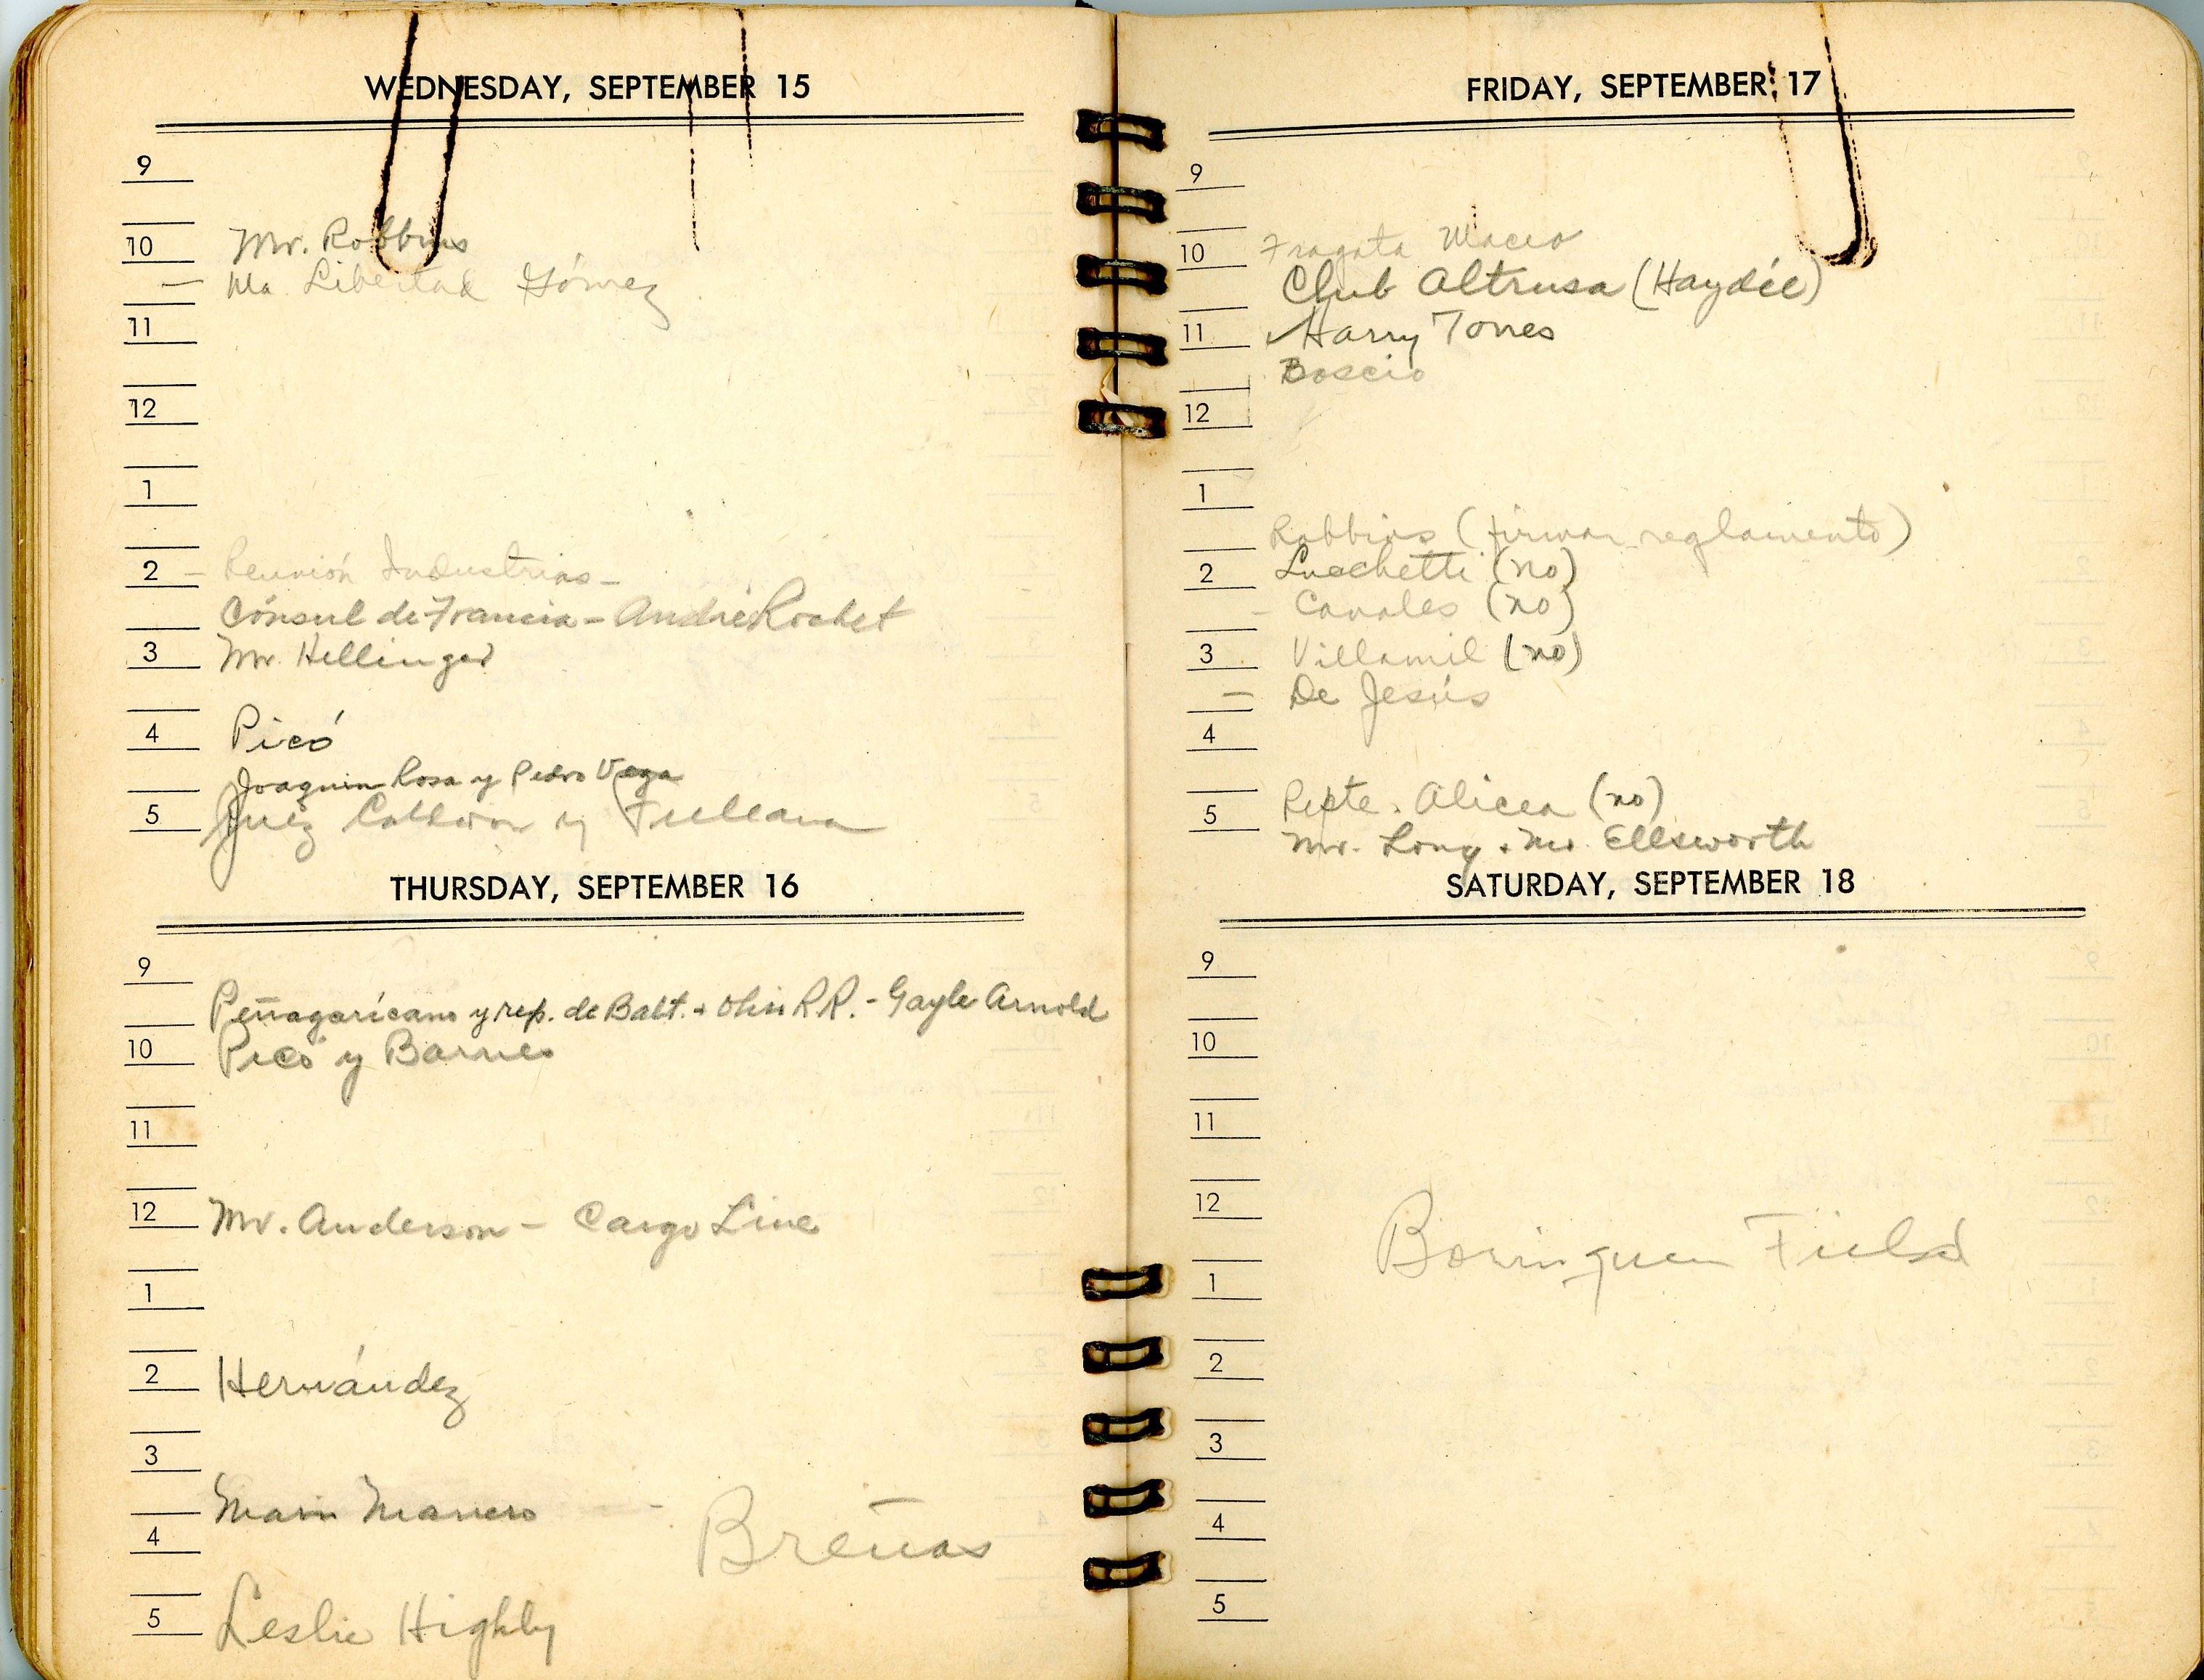 WEDNESDAY, SEPTEMBER 15
9
10 Mr. Robbins
— Ma Libertad Gómez
11
12
1
2 - Reunión Industrias -
Cónsul de Francia - André Rochet
3 Mr. Hellinger
4 Picó
Joaquin Rosa y Pedro Vega
5 Juez y
THURSDAY, SEPTEMBER 16
9
Peñagarícano y rep. de Balt. + Ohio R.R. - Gayle Arnold
10 Picó y Barnes
11
12 Mr. Anderson - Cargo Line
1
2 Hernández
3
Marin Manero
Breñas
4
5 Leslie Highly
FRIDAY, SEPTEMBER 17
9
10 Fragata
Club Altrusa (Haydée)
11 Harry Torres
Boscio
12
1
Robbins (firmar reglamento)
2 Lucchetti (no)
- Canales (no)
3 Villamil (no)
— De Jesús
4
5 Repte. Alicea (no)
Mr. Long + Mr. Ellsworth
SATURDAY, SEPTEMBER 18
9
10
11
12
Borinquen Field
1
2
3
4
5